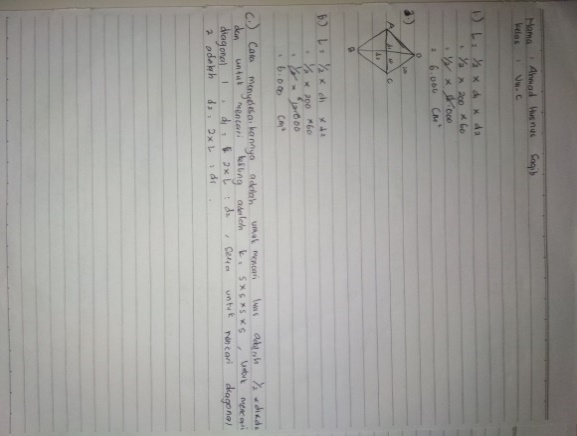 Nama : Ahmad Husnul
kelas : VIII. C
1) L = 1/2 x d1 x d2
= 1/2 x 200 x 60
= 1/2 x 12.000
= 6.000 cm²
2)
A
B
D
C
b) L = 1/2 x d1 x d2
= 1/2 x 200 x 60
= 1/2 x
= 6.000 cm²
C.) Cara menyelesaikannya adalah untuk mencari luas adalah 1/2 x d1 x d2
dan untuk mencari keliling adalah k = s x s x s x s , untuk mencari
diagonal 1 : d1 = 2 x L : d2 , serta untuk mencari diagonal
2 adalah d2 = 2 x L : d1 .